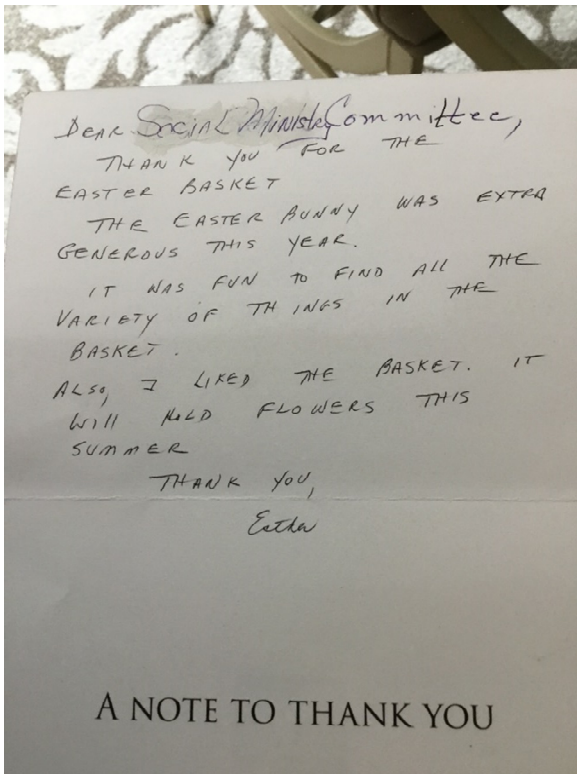 DEAR Social Ministry Committee,
THANK YOU FOR THE
EASTER BASKET
THE EASTER BUNNY WAS EXTRA
GENEROUS THIS YEAR.
IT WAS FUN TO FIND ALL THE
VARIETY OF THINGS IN THE
BASKET.
ALSO, I LIKED THE BASKET. IT
WILL HOLD FLOWERS THIS
SUMMER
THANK YOU,
Esther
A NOTE TO THANK YOU